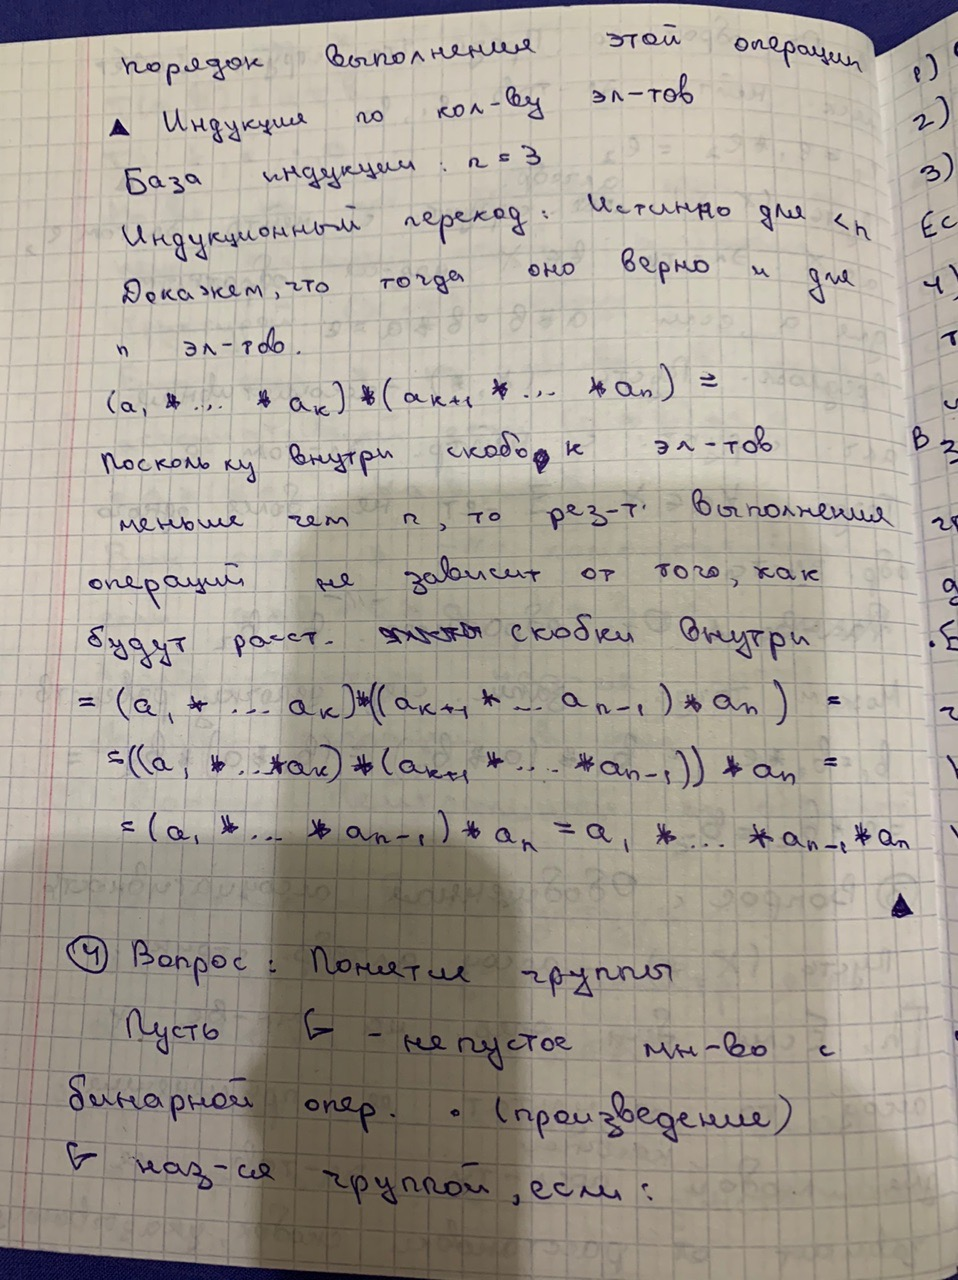 порядок выполнения этой операции
▲ Индукция по кол-ву эл-тов
База индукции: n = 3
Индукционный переход: Истинно для <n
Докажем, что тогда оно верно и для
n эл-тов.
(a₁ * ... * aₖ) * (aₖ₊₁ * ... * aₙ) =
Поскольку внутри скобок эл-тов
меньше чем n, то рез-т. выполнения
операций не зависит от того, как
будут расст. скобки внутри
= (a₁ * ... aₖ) * ((aₖ₊₁ * ... aₙ₋₁) * aₙ) =
= ((a₁ * ... * aₖ) * (aₖ₊₁ * ... * aₙ₋₁)) * aₙ =
= (a₁ * ... * aₙ₋₁) * aₙ = a₁ * ... * aₙ₋₁ * aₙ
▲
④ Вопрос: Понятие группы
Пусть G - непустое мн-во с
бинарной опер. ∘ (произведение)
G наз-ся группой, если:
1)
2)
3)
Ес
4)
В